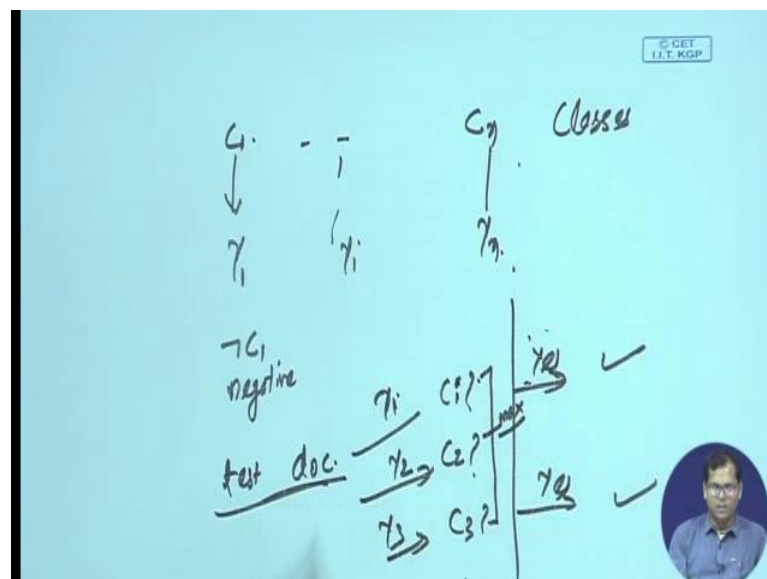 © CET
I.I.T. KGP
C1 - - Cn Classes
γ1 γi γn
¬C1
negative
test doc. γ1 C1? Yes ✓
γ2 C2? max
γ3 C3? Yes ✓